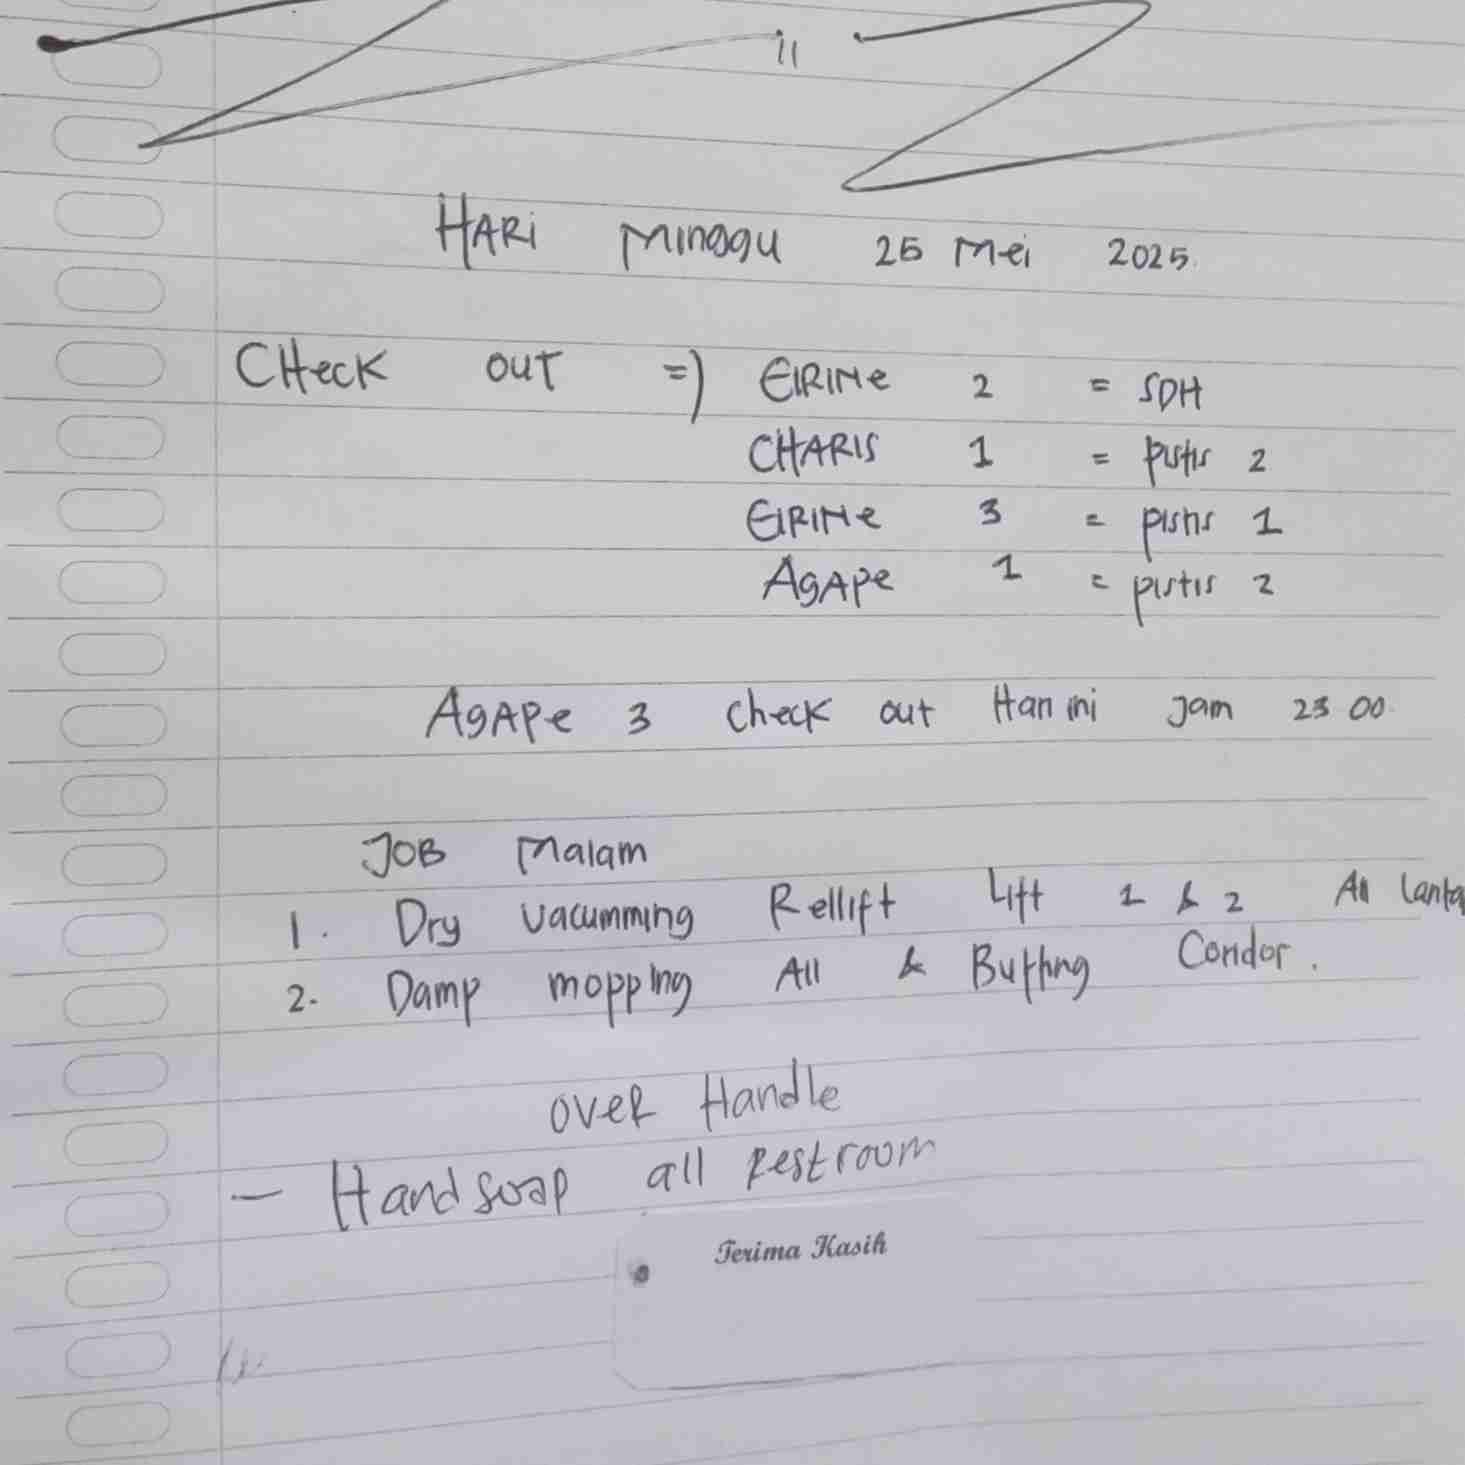 HARi Minggu 25 Mei 2025.
CHecK OUT => EIRINe 2 = SDH
CHARIS 1 = pistis 2
EIRINe 3 = pistis 1
AgAPe 1 = pistis 2
AgAPe 3 check out Hari ini Jam 23 00.
JOB Malam
1. Dry Vacumming Rellift Lift 1 & 2 All Lanta
2. Damp mopping All & Buffing Coridor.
OVER Handle
- Handsoap all Restroom
Terima Kasih